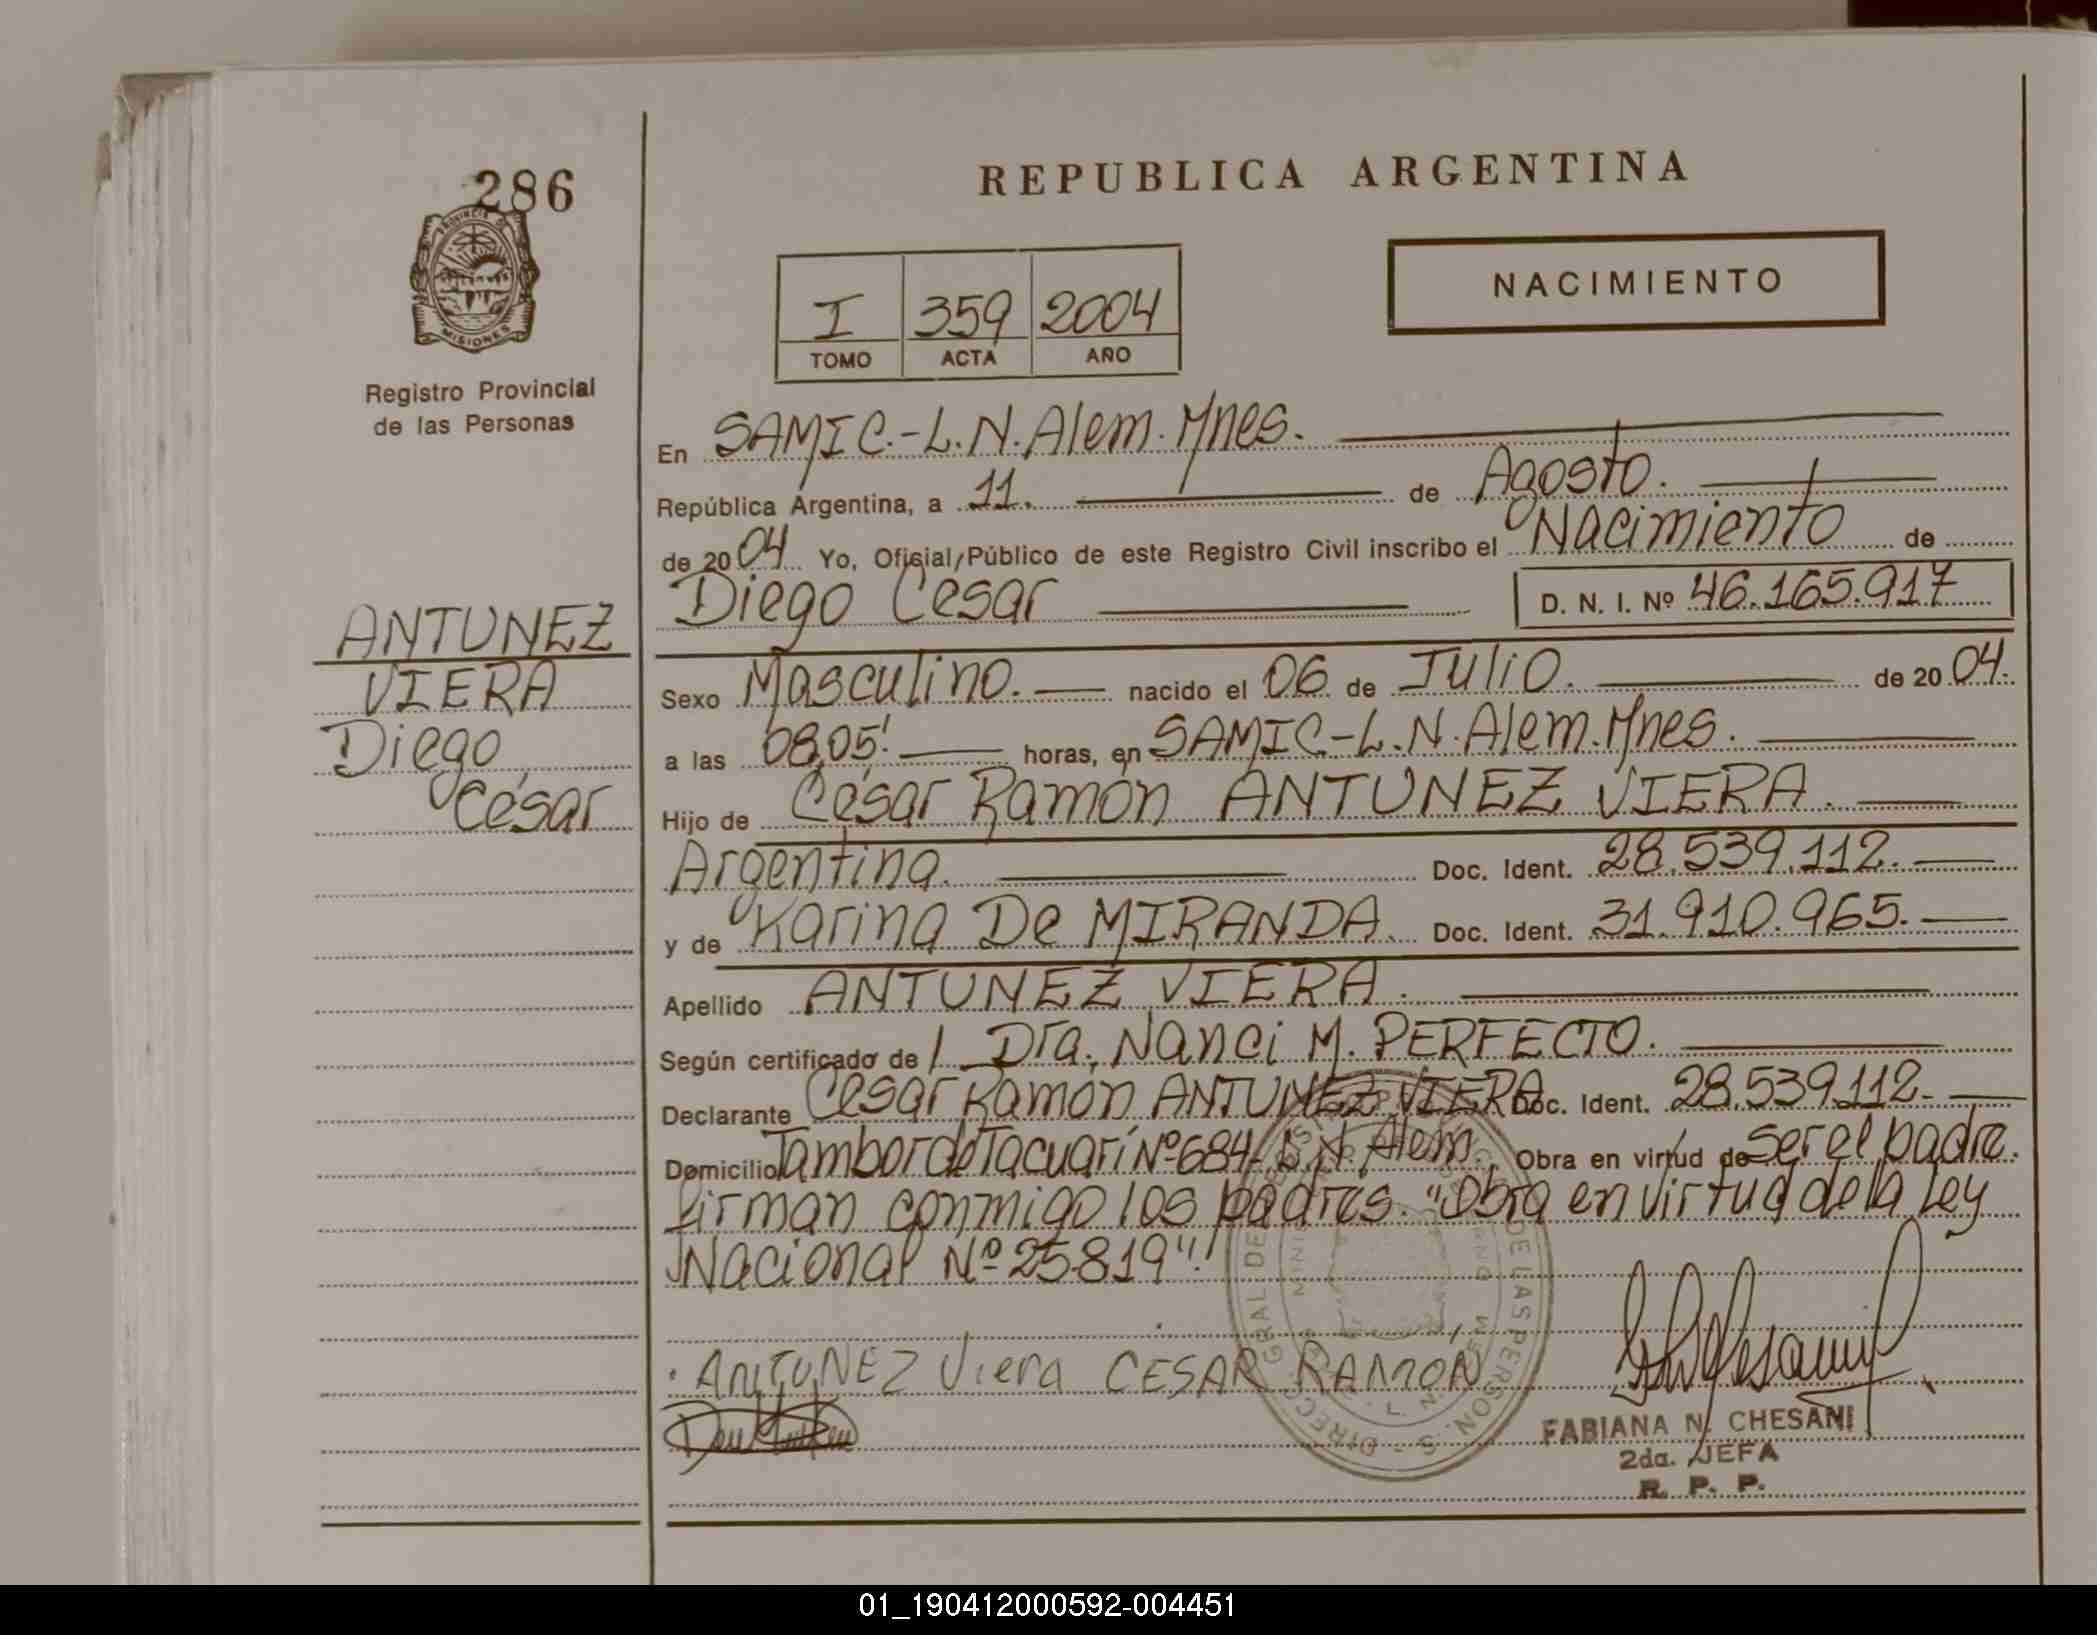 286
PROVINCIA DE
MISIONES
Registro Provincial
de las Personas
ANTUNEZ
VIERA
Diego
César
REPUBLICA ARGENTINA
NACIMIENTO
I 359 2004
TOMO ACTA AÑO
En SAMIC.-L.N.Alem.Mnes.
República Argentina, a 11. de Agosto.
de 2004 Yo, Oficial Público de este Registro Civil inscribo el Nacimiento de
Diego César D. N. I. Nº 46.165.917
Sexo Masculino. nacido el 06 de Julio. de 2004.
a las 08,05' horas, en SAMIC-L.N.Alem.Mnes.
Hijo de César Ramón ANTUNEZ VIERA.
Argentina. Doc. Ident. 28.539.112.
y de Karina De MIRANDA. Doc. Ident. 31.910.965.
Apellido ANTUNEZ VIERA.
Según certificado de Dra. Nanci M. PERFECTO.
Declarante César Ramón ANTUNEZ VIERA Doc. Ident. 28.539.112-
Domicilio Tambor de Tacuarí Nº 684- L.N. Alem. Obra en virtud de ser el padre.
firman conmigo los padres. "Obra en virtud de la Ley
Nacional Nº 25.819".
ANTUNEZ Viera CESAR RAMÓN
FABIANA N. CHESANI
2da. JEFA
R. P. P.
01_190412000592-004451